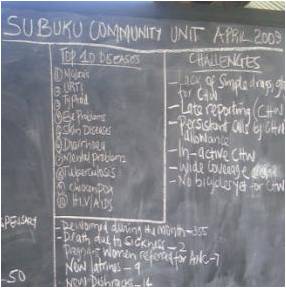 SUBUKU COMMUNITY UNIT APRIL 2009
TOP 10 DISEASES
① Malaria
② URTI
③ Typhoid
④ Eye Problems
⑤ Skin Diseases
⑥ Diarrhoea
⑦ Mental problems
⑧ Tuberculosis
⑨ Chickenpox
⑩ HIV/AIDS
CHALLENGES
- Lack of Simple drugs,
for CHW
- Late reporting (CHW
- Persistent calls by CHW
allowance
- In-active CHW
- Wide coverage
- No bicycle yet for CHW
- Dewormed during the month - 355
- Death due to sickness - 2
Pregnant women referred for ANC - 7
New latrines - 9
New Dishracks - 14
50